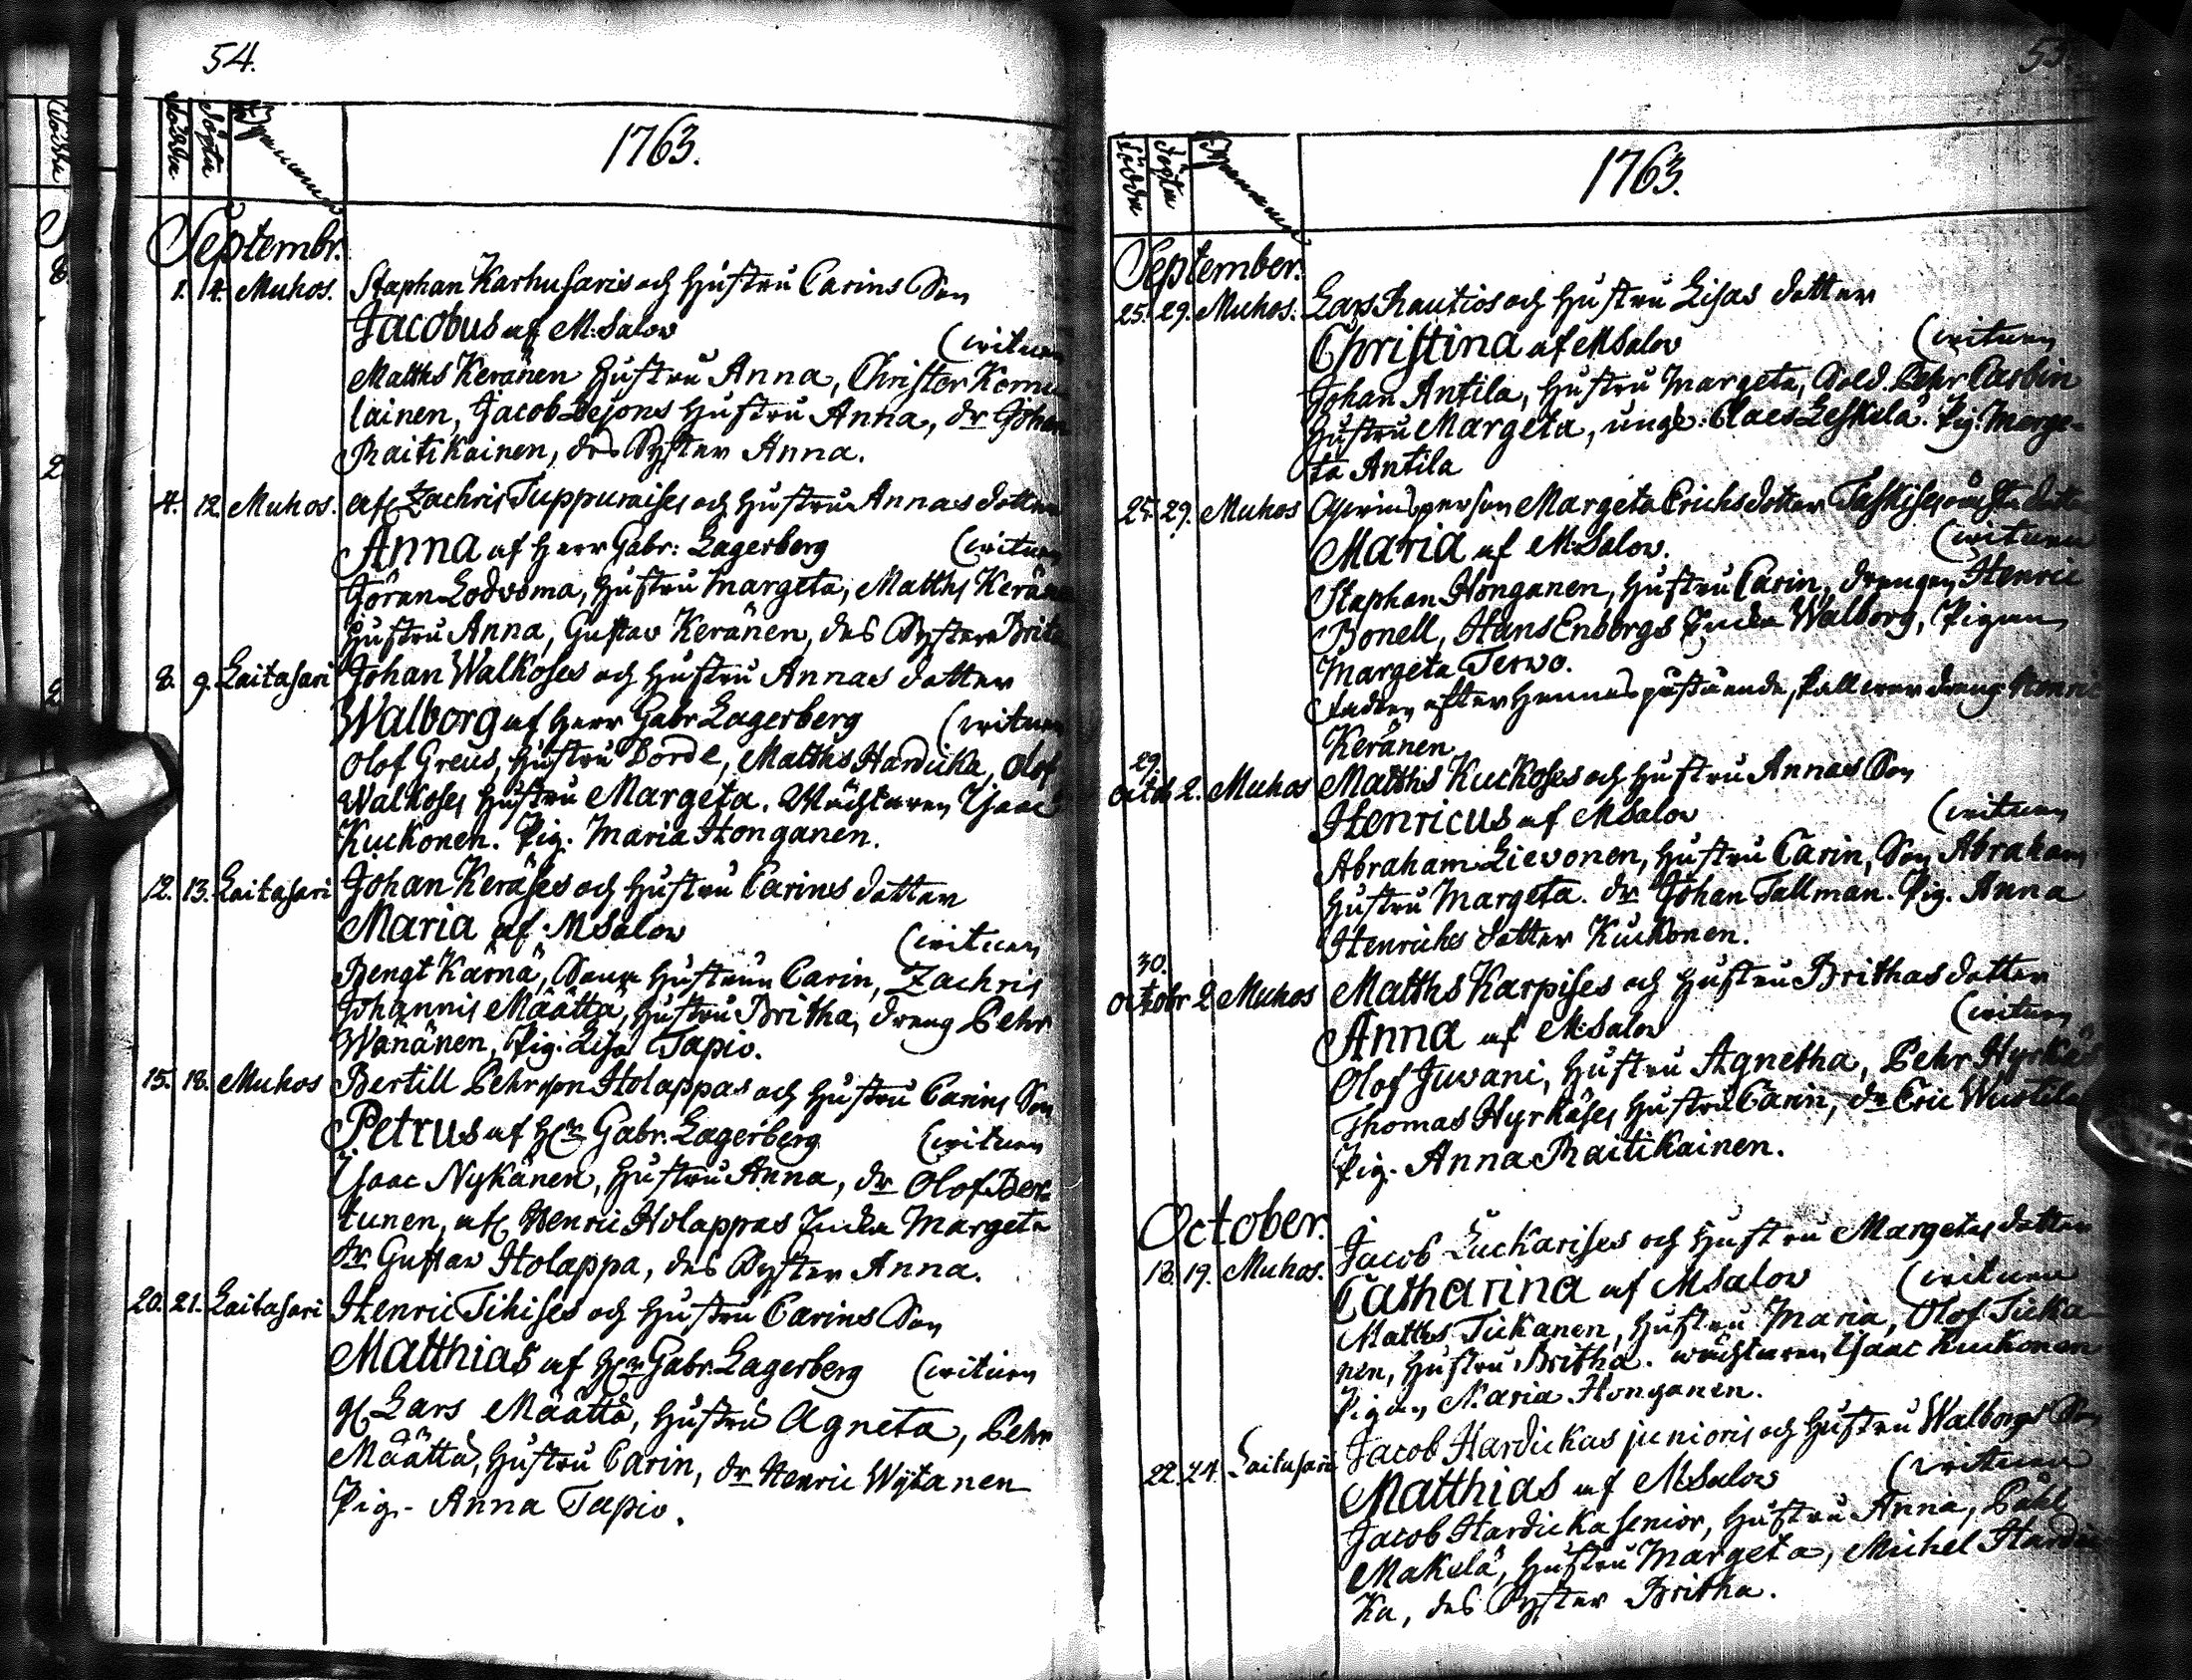 54.
Födda
Döpta
Byarnas namn
1763.
Septembr.
1. 4. Muhos. Staphan Karhusaris och Hustru Carins Son
Jacobus af M: Salov (vitnen
Matths Keränen Hustru Anna, Christer
lainen, Jacob Hustru Anna, dr. Johan
Raitikainen, des Syster Anna.
4. 12. Muhos. afl. Zachris Tuppuraises och Hustru Annas dotter
Anna af Herr Gabr: Lagerberg (vitnen
Göran Lodvoma, Hustru Margeta, Matths Keränen
Hustru Anna, Gustav Keränen, des Syster Brita
8. 9. Laitasari Johan Walkoses och Hustru Annas dotter
Walborg af Herr Gabr Lagerberg (vitnen
Olof Greus, Hustru Borde, Matths Hardicka, Olof
Walkoses Hustru Margeta. Wächtaren Isaac
Kuckonen. Pig. Maria Honganen.
12. 13. Laitasari Johan Keräses och Hustru Carins dotter
Maria af M Salov (vitnen
Bengt Kärnä, Hustrun Carin, Zachris
Johannis Määttä, Hustru Britha, dreng Pehr
Wänänen, Pig: Lisa Tapio.
15. 18. Muhos Bertill Pehrson Holappas och Hustru Carins Son
Petrus af Hr. Gabr. Lagerberg (vitnen
Isaac Nykänen, Hustru Anna, dr. Olof Ber-
tunen, afl. Henric Holappas Enka Margeta
dr. Gustav Holappa, des Syster Anna.
20. 21. Laitasari Henric Tihises och Hustru Carins Son
Matthias af Hr. Gabr. Lagerberg (vitnen
Lars Määttä, Hustru Agneta, Pehr
Määttä, Hustru Carin, dr. Henric Wytanen
Pig. Anna Tapio.
55.
Födda
Döpta
Byarnas namn
1763.
September.
25. 29. Muhos. Lars Rautios och Hustru Lisas dotter
Christina af M Salov (vitnen
Johan Antila, Hustru Margeta, Sold. Pehr Casbin
Hustru Margeta, ungk: Claes Leskelä. Pig: Marge-
ta Antila
25. 29. Muhos Margeta Erichsdotter dotter
Maria af M: Salov. (vitnen
Staphan Honganen, Hustru Carin, drengen Henric
Bonell, Hans Enbergs Enka Walborg, Pigan
Margeta Terwo.
Fadren efter Hennes skall vara dreng Henric
Keränen
29.
Octob 2. Muhos Matths Kuckoses och Hustru Annas Son
Henricus af M Salov (vitnen
Abraham Lievonen, Hustru Carin, Son Abraham
Hustru Margeta. dr. Johan Tallman. Pig. Anna
Henrichs dotter Kuckonen.
30.
Octobr 2 Muhos Matths Karpises och Hustru Brithas dotter
Anna af M: Salov (vitnen
Olof Juvani, Hustru Agnetha, Pehr Hyrkäs
Thomas Hyrkäses Hustru Carin, dr. Eric
Pig. Anna Raitikainen.
October.
18. 19. Muhos. Jacob Luckarises och Hustru Margetas dotter
Catharina af M Salov (vitnen
Matths Tickanen, Hustru Maria, Olof Ticka
nen, Hustru Britha. wächtaren Isaac Kuckonen
Pigan Maria Honganen.
22. 24. Laitasari Jacob Hardickas junioris och Hustru Walborgs Son
Matthias af M Salov (vitnen
Jacob Hardicka senior, Hustru Anna, Påhl
Makelä, Hustru Margeta, Michel Hardic
Ka, des Syster Britha.